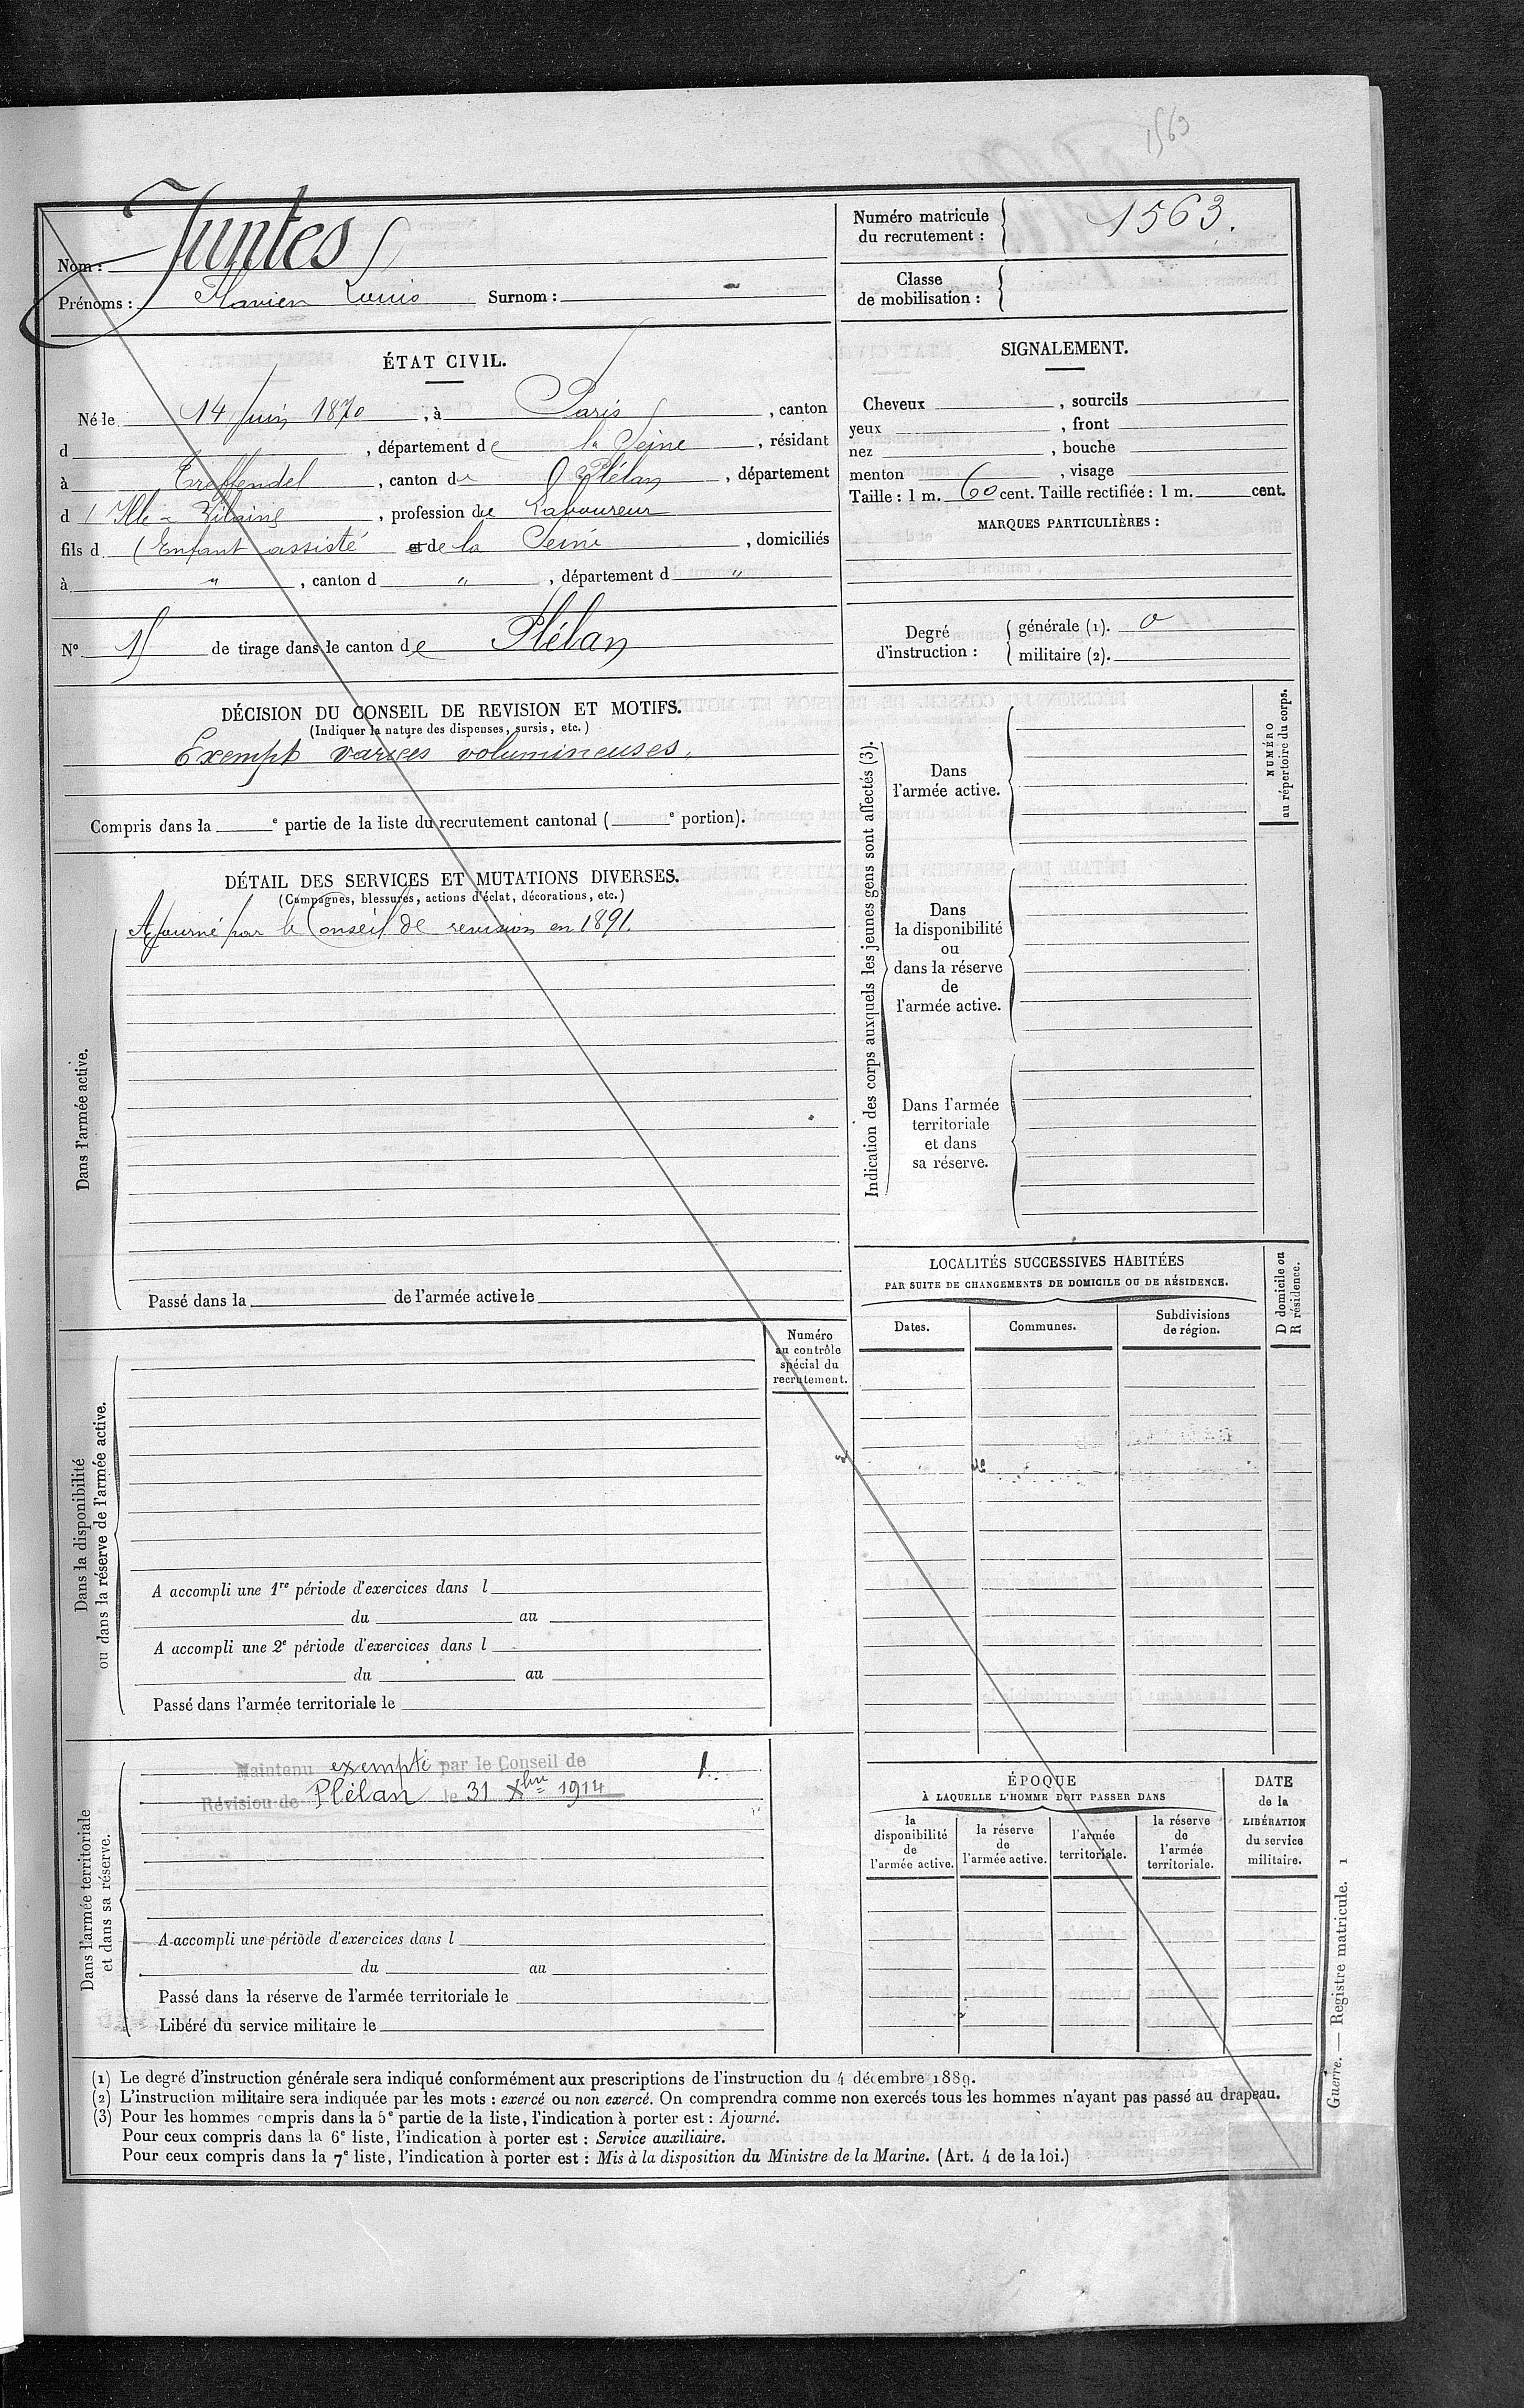 1563
Nom : Juntes
Prénoms : Flavien Louis Surnom : -
Numéro matricule du recrutement : 1563.
Classe de mobilisation :
ÉTAT CIVIL.
Né le 14 Juin 1870, à Paris, canton
d , département de la Seine, résidant
à Treffendel, canton de Plélan, département
d'Ille-&-Vilaine, profession de Laboureur
fils d (Enfant assisté et de la Seine, domiciliés
à " , canton d " , département d "
N° 15 de tirage dans le canton de Plélan
SIGNALEMENT.
Cheveux , sourcils
yeux , front
nez , bouche
menton , visage
Taille : 1 m. 60 cent. Taille rectifiée : 1 m. cent.
MARQUES PARTICULIÈRES :
Degré d'instruction :
générale (1). 0
militaire (2).
DÉCISION DU CONSEIL DE REVISION ET MOTIFS.
(Indiquer la nature des dispenses, sursis, etc.)
Exempt varices volumineuses.
Compris dans la e partie de la liste du recrutement cantonal ( e portion).
DÉTAIL DES SERVICES ET MUTATIONS DIVERSES.
(Campagnes, blessures, actions d'éclat, décorations, etc.)
Dans l'armée active.
Ajourné par le Conseil de revision en 1891.
Passé dans la de l'armée active le
Indication des corps auxquels les jeunes gens sont affectés (3).
NUMÉRO
au répertoire du corps.
Dans
l'armée active.
Dans
la disponibilité
ou
dans la réserve
de
l'armée active.
Dans l'armée
territoriale
et dans
sa réserve.
LOCALITÉS SUCCESSIVES HABITÉES
PAR SUITE DE CHANGEMENTS DE DOMICILE OU DE RÉSIDENCE.
D domicile ou
R résidence.
Dates.
Communes.
Subdivisions
de région.
Numéro
au contrôle
spécial du
recrutement.
Dans la disponibilité
ou dans la réserve de l'armée active.
A accompli une 1re période d'exercices dans l
du au
A accompli une 2e période d'exercices dans l
du au
Passé dans l'armée territoriale le
Dans l'armée territoriale
et dans sa réserve.
Maintenu exempté par le Conseil de 1.
Révision de Plélan le 31 Xbre 1914
A accompli une période d'exercices dans l
du au
Passé dans la réserve de l'armée territoriale le
Libéré du service militaire le
ÉPOQUE
À LAQUELLE L'HOMME DOIT PASSER DANS
la
disponibilité
de
l'armée active.
la réserve
de
l'armée active.
l'armée
territoriale.
la réserve
de
l'armée
territoriale.
DATE
de la
LIBÉRATION
du service
militaire.
(1) Le degré d'instruction générale sera indiqué conformément aux prescriptions de l'instruction du 4 décembre 1889.
(2) L'instruction militaire sera indiquée par les mots : exercé ou non exercé. On comprendra comme non exercés tous les hommes n'ayant pas passé au drapeau.
(3) Pour les hommes compris dans la 5e partie de la liste, l'indication à porter est : Ajourné.
Pour ceux compris dans la 6e liste, l'indication à porter est : Service auxiliaire.
Pour ceux compris dans la 7e liste, l'indication à porter est : Mis à la disposition du Ministre de la Marine. (Art. 4 de la loi.)
Guerre. — Registre matricule. 1